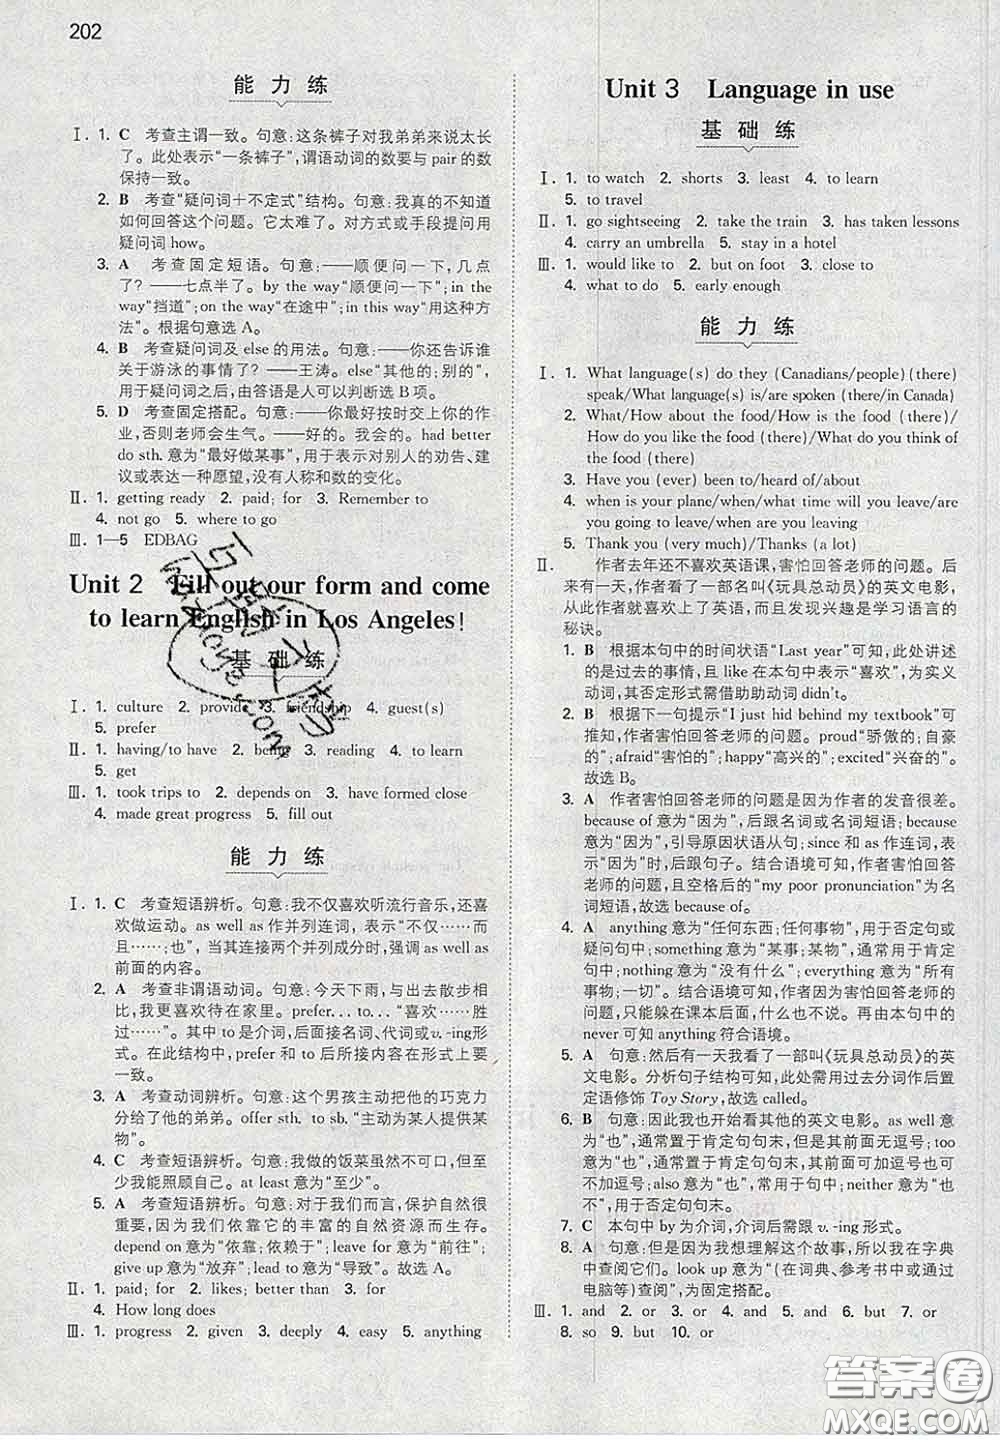 202
能 力 练
Ⅰ. 1. C 考查主谓一致。句意：这条裤子对我弟弟来说太长
了。此处表示“一条裤子”，谓语动词的数要与 pair 的数
保持一致。
2. B 考查“疑问词＋不定式”结构。句意：我真的不知道
如何回答这个问题。它太难了。对方式或手段提问用
疑问词 how。
3. A 考查固定短语。句意：——顺便问一下，几点
了？——七点半了。by the way“顺便问一下”；in the
way“挡道”；on the way“在途中”；in this way“用这种方
法”。根据句意选 A。
4. B 考查疑问词及 else 的用法。句意：——你还告诉谁
关于游泳的事情了？——王涛。else“其他的；别的”，
用于疑问词之后，由答语是人可以判断选 B 项。
5. D 考查固定搭配。句意：——你最好按时交上你的作
业，否则老师会生气。——好的。我会的。had better
do sth. 意为“最好做某事”，用于表示对别人的劝告、建
议或表达一种愿望，没有人称和数的变化。
Ⅱ. 1. getting ready 2. paid; for 3. Remember to
4. not go 5. where to go
Ⅲ. 1—5 EDBAG
Unit 2 Fill out our form and come
to learn English in Los Angeles!
基 础 练
Ⅰ. 1. culture 2. provide 3. friendship 4. guest(s)
5. prefer
Ⅱ. 1. having/to have 2. being 3. reading 4. to learn
5. get
Ⅲ. 1. took trips to 2. depends on 3. have formed close
4. made great progress 5. fill out
能 力 练
Ⅰ. 1. C 考查短语辨析。句意：我不仅喜欢听流行音乐，还喜
欢做运动。as well as 作并列连词，表示“不仅……而
且……；也”，当其连接两个并列成分时，强调 as well as
前面的内容。
2. A 考查非谓语动词。句意：今天下雨，与出去散步相
比，我更喜欢待在家里。prefer...to... “喜欢……胜
过……”。其中 to 是介词，后面接名词、代词或 v.-ing形
式。在此结构中，prefer 和 to 后所接内容在形式上要一
致。
3. A 考查动词辨析。句意：这个男孩主动把他的巧克力
分给了他的弟弟。offer sth. to sb. “主动为某人提供某
物”。
4. C 考查短语辨析。句意：我做的饭菜虽然不可口，但
至少我能照顾自己。at least意为“至少”。
5. A 考查短语辨析。句意：对于我们而言，保护自然很
重要，因为我们依靠它的丰富的自然资源而生存。
depend on 意为“依靠；依赖于”；leave for 意为“前往”；
give up 意为“放弃”；lead to 意为“导致”。故选 A。
Ⅱ. 1. paid; for 2. likes; better than 3. for
4. How long does
Ⅲ. 1. progress 2. given 3. deeply 4. easy 5. anything
Unit 3 Language in use
基 础 练
Ⅰ. 1. to watch 2. shorts 3. least 4. to learn
5. to travel
Ⅱ. 1. go sightseeing 2. take the train 3. has taken lessons
4. carry an umbrella 5. stay in a hotel
Ⅲ. 1. would like to 2. but on foot 3. close to
4. what to do 5. early enough
能 力 练
Ⅰ. 1. What language(s) do they (Canadians/people) (there)
speak/What language(s) is/are spoken (there/in Canada)
2. What/How about the food/How is the food (there)/
How do you like the food (there)/What do you think of
the food (there)
3. Have you (ever) been to/heard of/about
4. when is your plane/when/what time will you leave/are
you going to leave/when are you leaving
5. Thank you (very much)/Thanks (a lot)
Ⅱ. 作者去年还不喜欢英语课，害怕回答老师的问题。后
来有一天，作者看了一部名叫《玩具总动员》的英文电影，
从此作者就喜欢上了英语，由此发现兴趣是学习语言的
秘诀。
1. B 根据本句中的时间状语“Last year”可知，此处讲述
的是过去的事情，且 like 在本句中表示“喜欢”，为实义
动词，其否定形式需借助助动词 didn't。
2. B 根据下一句提示“I just hid behind my textbook”可
推知，作者害怕回答老师的问题。proud“骄傲的；自豪
的”；afraid“害怕的”；happy“高兴的”；excited“兴奋的”。
故选 B。
3. A 作者害怕回答老师的问题是因为作者的发音很差。
because of 意为“因为”，后跟名词或名词短语；because
意为“因为”，引导原因状语从句；since 和 as 作连词，表示
“因为”时，后跟句子。结合语境可知，作者害怕回答
老师的问题，且空格后的“my poor pronunciation”为名
词短语，故选 because of。
4. A anything 意为“任何东西；任何事物”，用于否定句或
疑问句中；something 意为“某事；某物”，通常用于肯定
句中；nothing 意为“没有什么”；everything 意为“所有
事物；一切”。结合语境可知，作者因害怕回答老师的问
题，只能躲在课本后面，什么也不说。再由本句中的
never 可知 anything 符合语境。
5. A 句意：然后有一天我看了一部叫《玩具总动员》的英
文电影。分析句子结构可知，此处需用过去分词作后置
定语修饰 Toy Story，故选 called。
6. B 句意：因此我也开始看其他的英文电影。as well 意
为“也”，通常置于肯定句句末，但是其前面无逗号；too
意为“也”，通常置于肯定句句末，其前面可加逗号也可
不加逗号；also 意为“也”，通常置于句中；neither 意为“也
不”，用于否定句句末。
7. C 本句中 by 为介词，介词后需跟 v.-ing 形式。
8. A 句意：但是因为我想理解这个故事，所以我在字典
中查阅它们。look up 意为“（在词典、参考书中或通过
电脑等）查阅”，为固定搭配。
Ⅲ. 1. and 2. or 3. or 4. and 5. and 6. but 7. or
8. so 9. but 10. or
答案圈
MXQE.COM